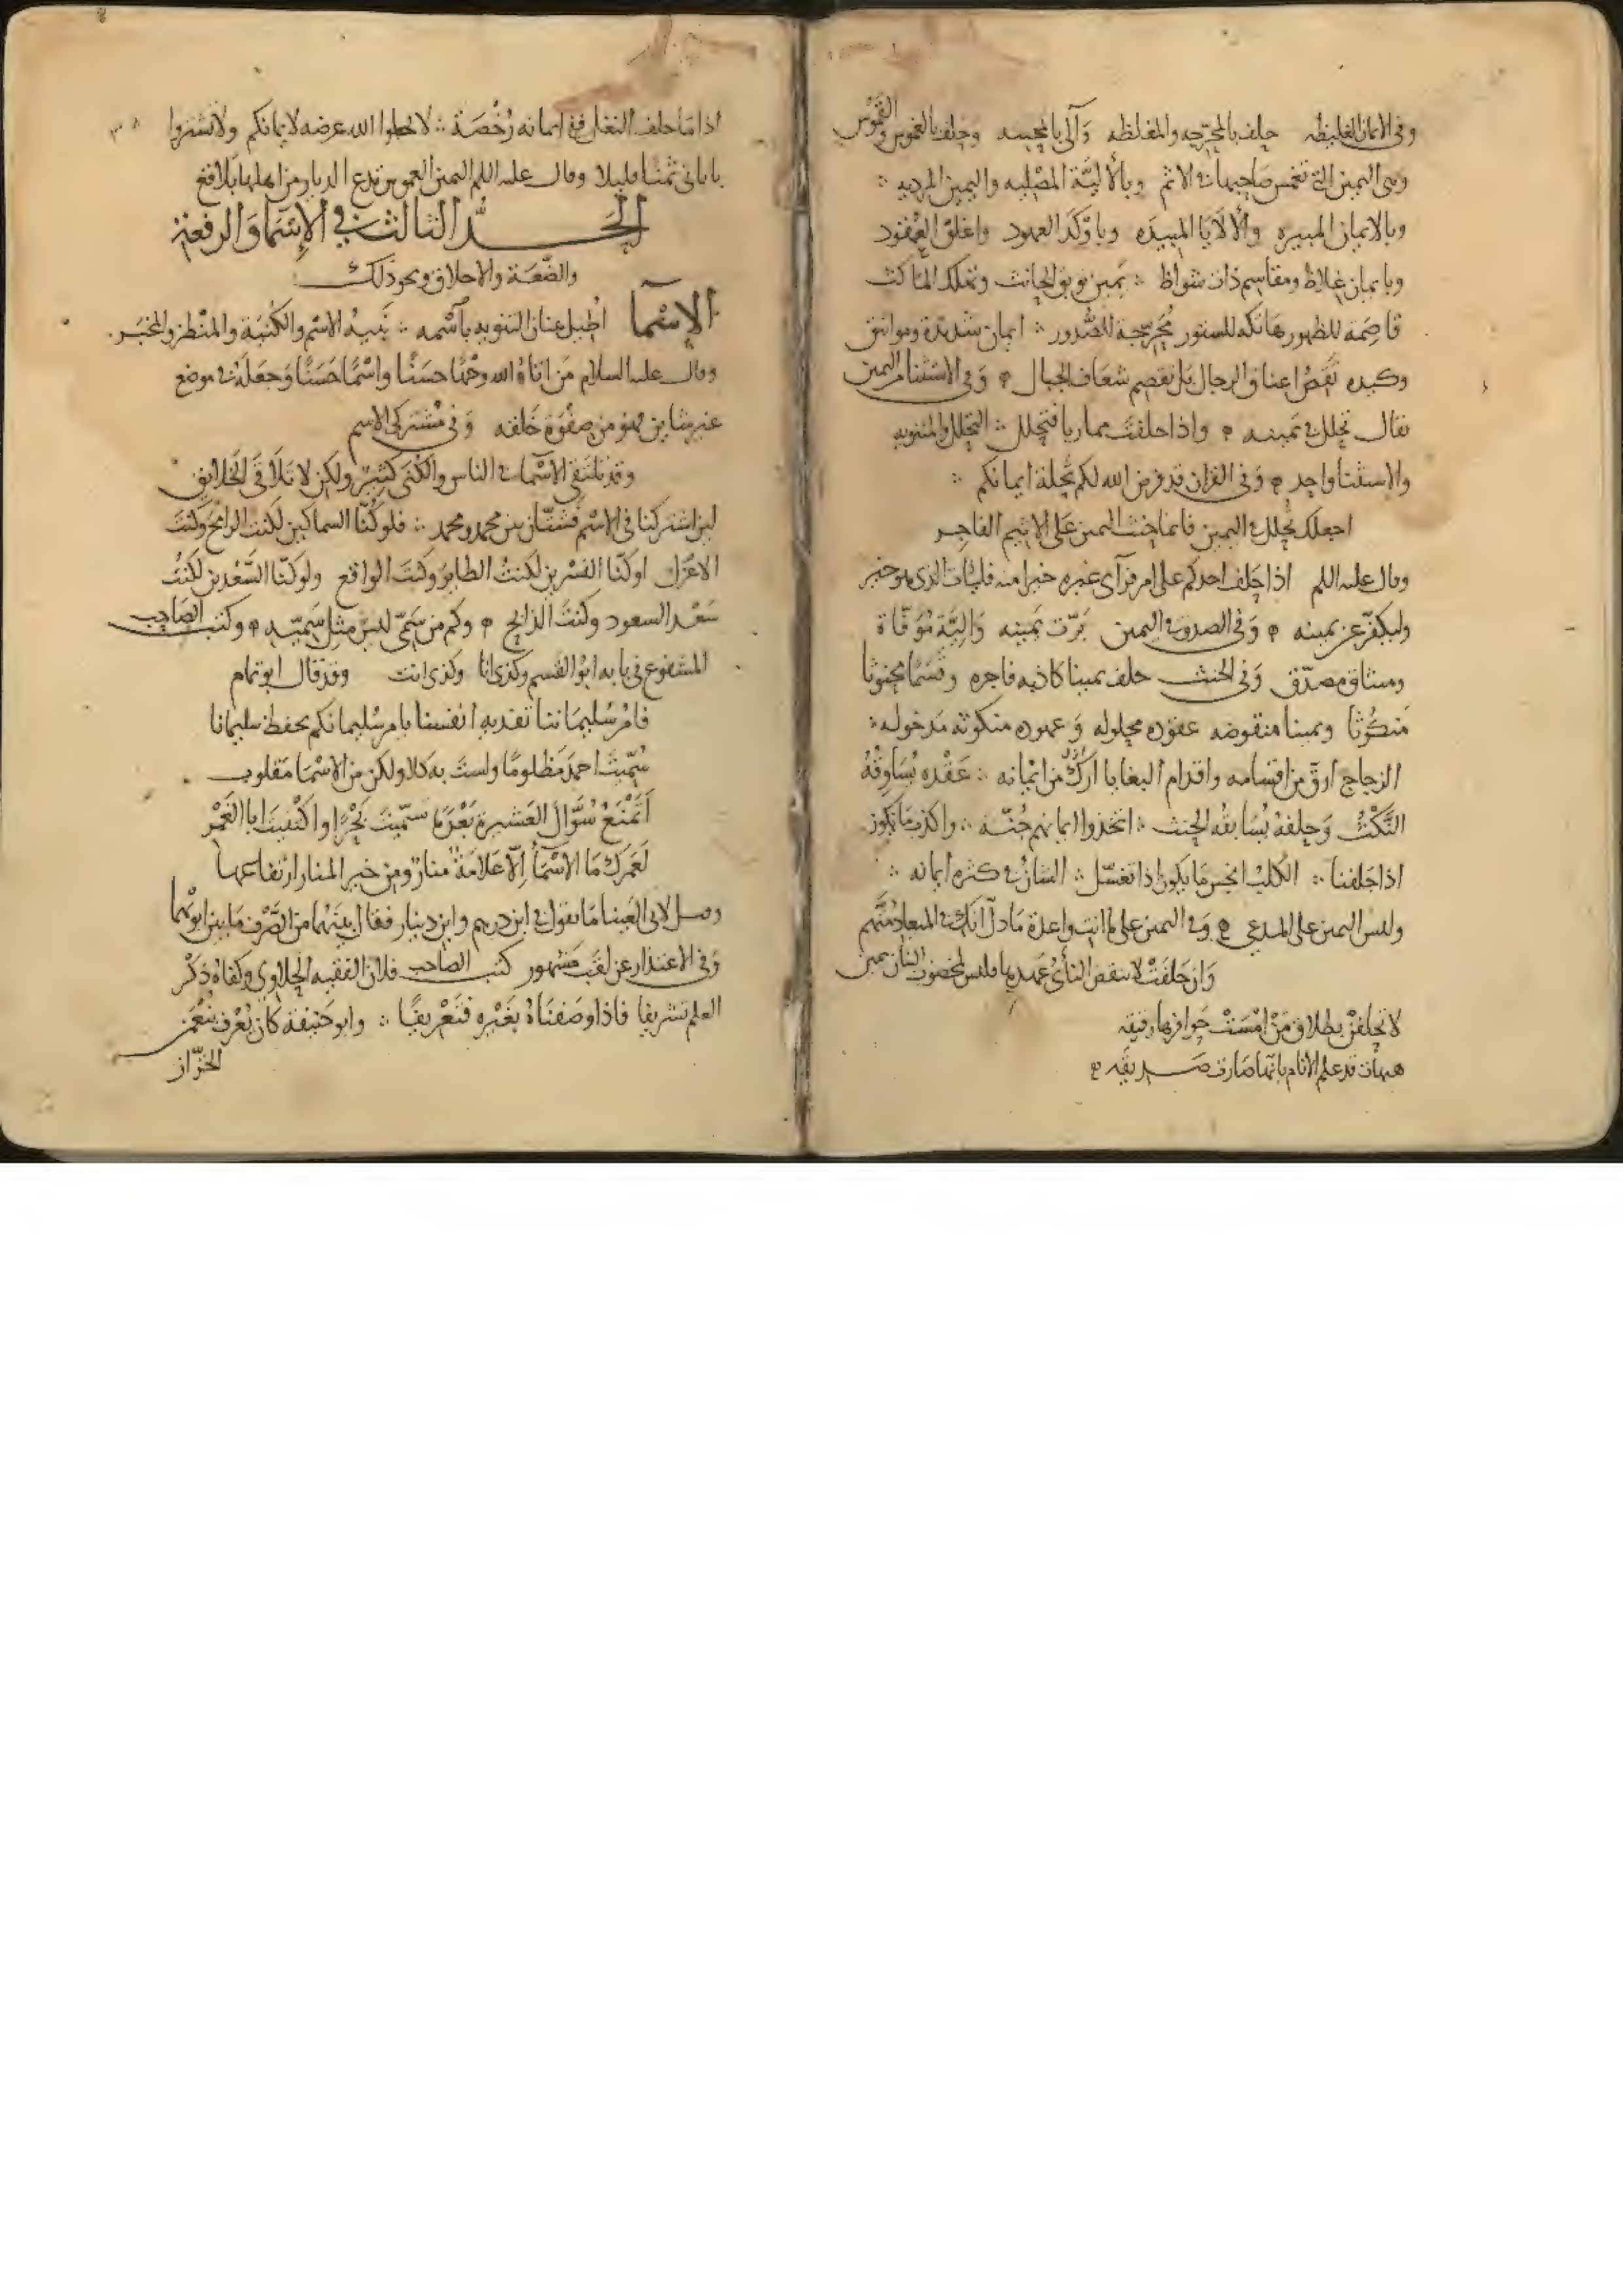 وفى الايمان الغليظه حلف بالمحرّجه والمغلظه وآلى وحلف بالغموس
وهى اليمين التى تغمس صاحبها فى الاثم وبالأليّة المصْلِيه واليمين المرديه
وبالايمان المبيره والألايا المبيده وباوكد العهود واغلق العقود
وبايمان غلاظ ومقاسم ذات شواظ يمين توبق الحانث وتهلك الناكث
قاصمة للظهور هاتكه للستور مُحرجة للصّدور ايمان شديدة ومواثيق
وكيده تقص اعناق الرجال بل تقصم شعاف الجبال وفى الاستثنا من اليمين
يقال تحلل فى يمينه واذا حلفت مماريا فتحلل التحلل والمثنويه
والاستثنا واحد وفى القران قد فرض الله لكم تحلة ايمانكم
احملك تحلل اليمين فانما حنث اليمين على الاثيم الفاجر
وقال عليه السلم اذا حلف احدكم على امر فرآى غيره خيرا منه فليات الذى هو خير
وليكفّر عن يمينه وفى الصدق فى اليمين برّت يمينه وأليّة مُوَفّاة
وميثاق مصدّق وفى الحنث حلف يمينا كاذبه فاجره وقسمًا محنوثا
منكوثا ويمينا منقوضه عقوده محلوله وعهوده منكوثه مدخوله
الزجاج ارقّ من اقسامه واقدام البغايا اركّ من ايمانه عَقْده يُسَاوِقُهُ
النّكْث وَحلفه يُسَابقُه الحنث اتخذوا ايمانهم جُنّة واكذب ما نكون
اذا حَلَفنا الكلب انجس ما يكون اذا تغسّل الشان فى كثره ايمانه
وليس اليمين على المدعى وفى اليمين على ما انت واعدة مَا دلّ انك فى الميعاد متّهم
وَان حَلفتْ لا ينقض النأىُ عهدها فليس لمخضوب البنان يمين
لا تحلفنْ بطلاق مَنْ امْسَتْ حوافرها رقيقه
هيهات قد علم الانام بانّها صارت صديقه
اذا ما حلف البغل ففى ايمانه رُخْصَة لا تجعلوا الله عرضه لايمانكم ولا تشتروا
باياتى ثمنًا قليلا وقال عليه السلم اليمين الغموس تدع الديار من اهلها بلاقع
الحدّ الثالث فى الاسْمَا وَالرفعة
والضّعَة والاخلاق ونحو ذلك
الاسْمآ اُطيل عنان التنويه باسمه نَبيهُ الاسْم والكُنيَة والمنْظر والمخبَر
وقال عليه السلام مَن اتاهُ الله وجْهًا حسَنًا واسْمًا حَسَنًا وَجعَلَهُ فى موضع
غير شاين فهو من صفْوَة خَلقه وَفى مُشتركى الاسم
وقد تلتقى الاسْمآ فى الناس والكُنَى كثيرٌ ولكن لا تَلَاقَى الخلايقُ
لين اشتركنا فى الاسْم فشتّان بين محمد ومحمد فلو كُنّا السماكين لكنت الرامحَ وكُنتَ
الاعزل او كنّا النسرين لكنتُ الطايرَ وكنتَ الواقع ولو كنّا السّعْدين لكُنتُ
سَعْد السعود وكنتَ الذابح وكم من سَمىّ ليسَ مثل سَميّه وكتب الصاحب
المشفوع فى بابه ابو القسم وكذى انا وكذى انت وقد قال ابو تمام
فامُر سُليمَاننا تفديه انفسنا بامر سُليمانكم بحفظ سليمانا
سُمّيتَ احمدَ مَظلومًا ولستَ به كلا ولكن من الاسْما مَقلوب
اتَمْنَعُ سُؤَّالَ العَشيرة بَعْدَما سمّيتَ بَحْرًا واكتنيتَ ابا الغَمْر
لعَمرك مَا الاسْمَآ الّا عَلامَةٌ منارٌ ومن خير المنار ارتفاعها
وقيل لابى العَينا مَا تقول فى ابن درهم وابن دينار فقال بينَهُما منَ الصّرْف مَا بين ابويْهما
وَفى الاعتذار عن لقَب مشهور كتب الصاحب فلان الفقيه الحلاوى وكفاهُ ذكْر
العلم تشريفا فاذا وصَفنَاهُ بغَيْره فتَعْريفًا وابو حَنيفة كان يُعْرَف بنُعْمن
الخزّاز